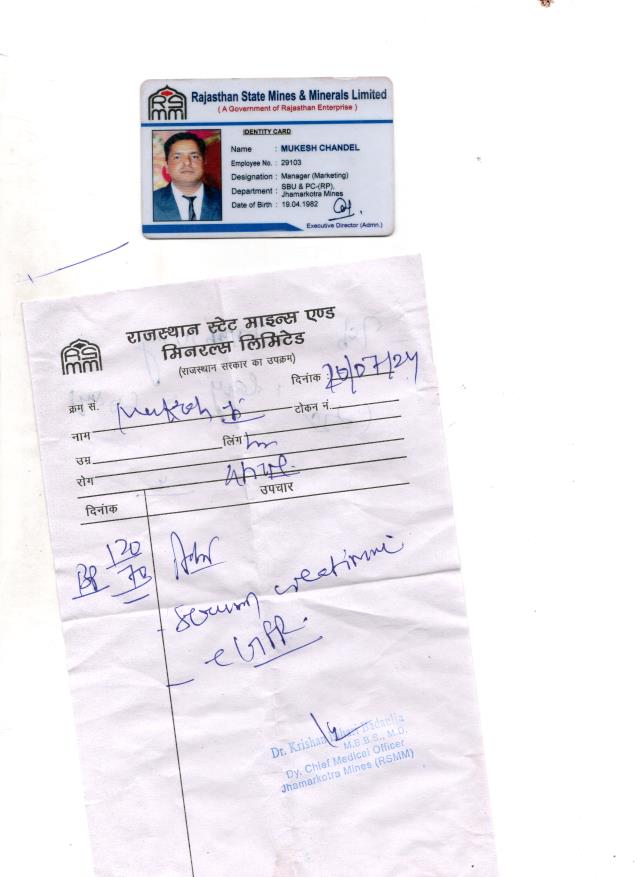 RSMM
Rajasthan State Mines & Minerals Limited
( A Government of Rajasthan Enterprise )
IDENTITY CARD
Name : MUKESH CHANDEL
Employee No. : 29103
Designation : Manager (Marketing)
Department : SBU & PC-(RP),
Jhamarkotra Mines
Date of Birth : 19.04.1982
Executive Director (Admn.)
RSMM
राजस्थान स्टेट माइन्स एण्ड
मिनरल्स लिमिटेड
(राजस्थान सरकार का उपक्रम)
दिनांक : /07/24
क्रम सं. टोकन नं.
नाम Mukesh
उम्र लिंग
रोग
दिनांक उपचार
BP 120
70
Adv
- serum creatinine
- eGFR.
Dr. Krishan
M.B.B.S., M.D.
Dy. Chief Medical Officer
Jhamarkotra Mines (RSMM)